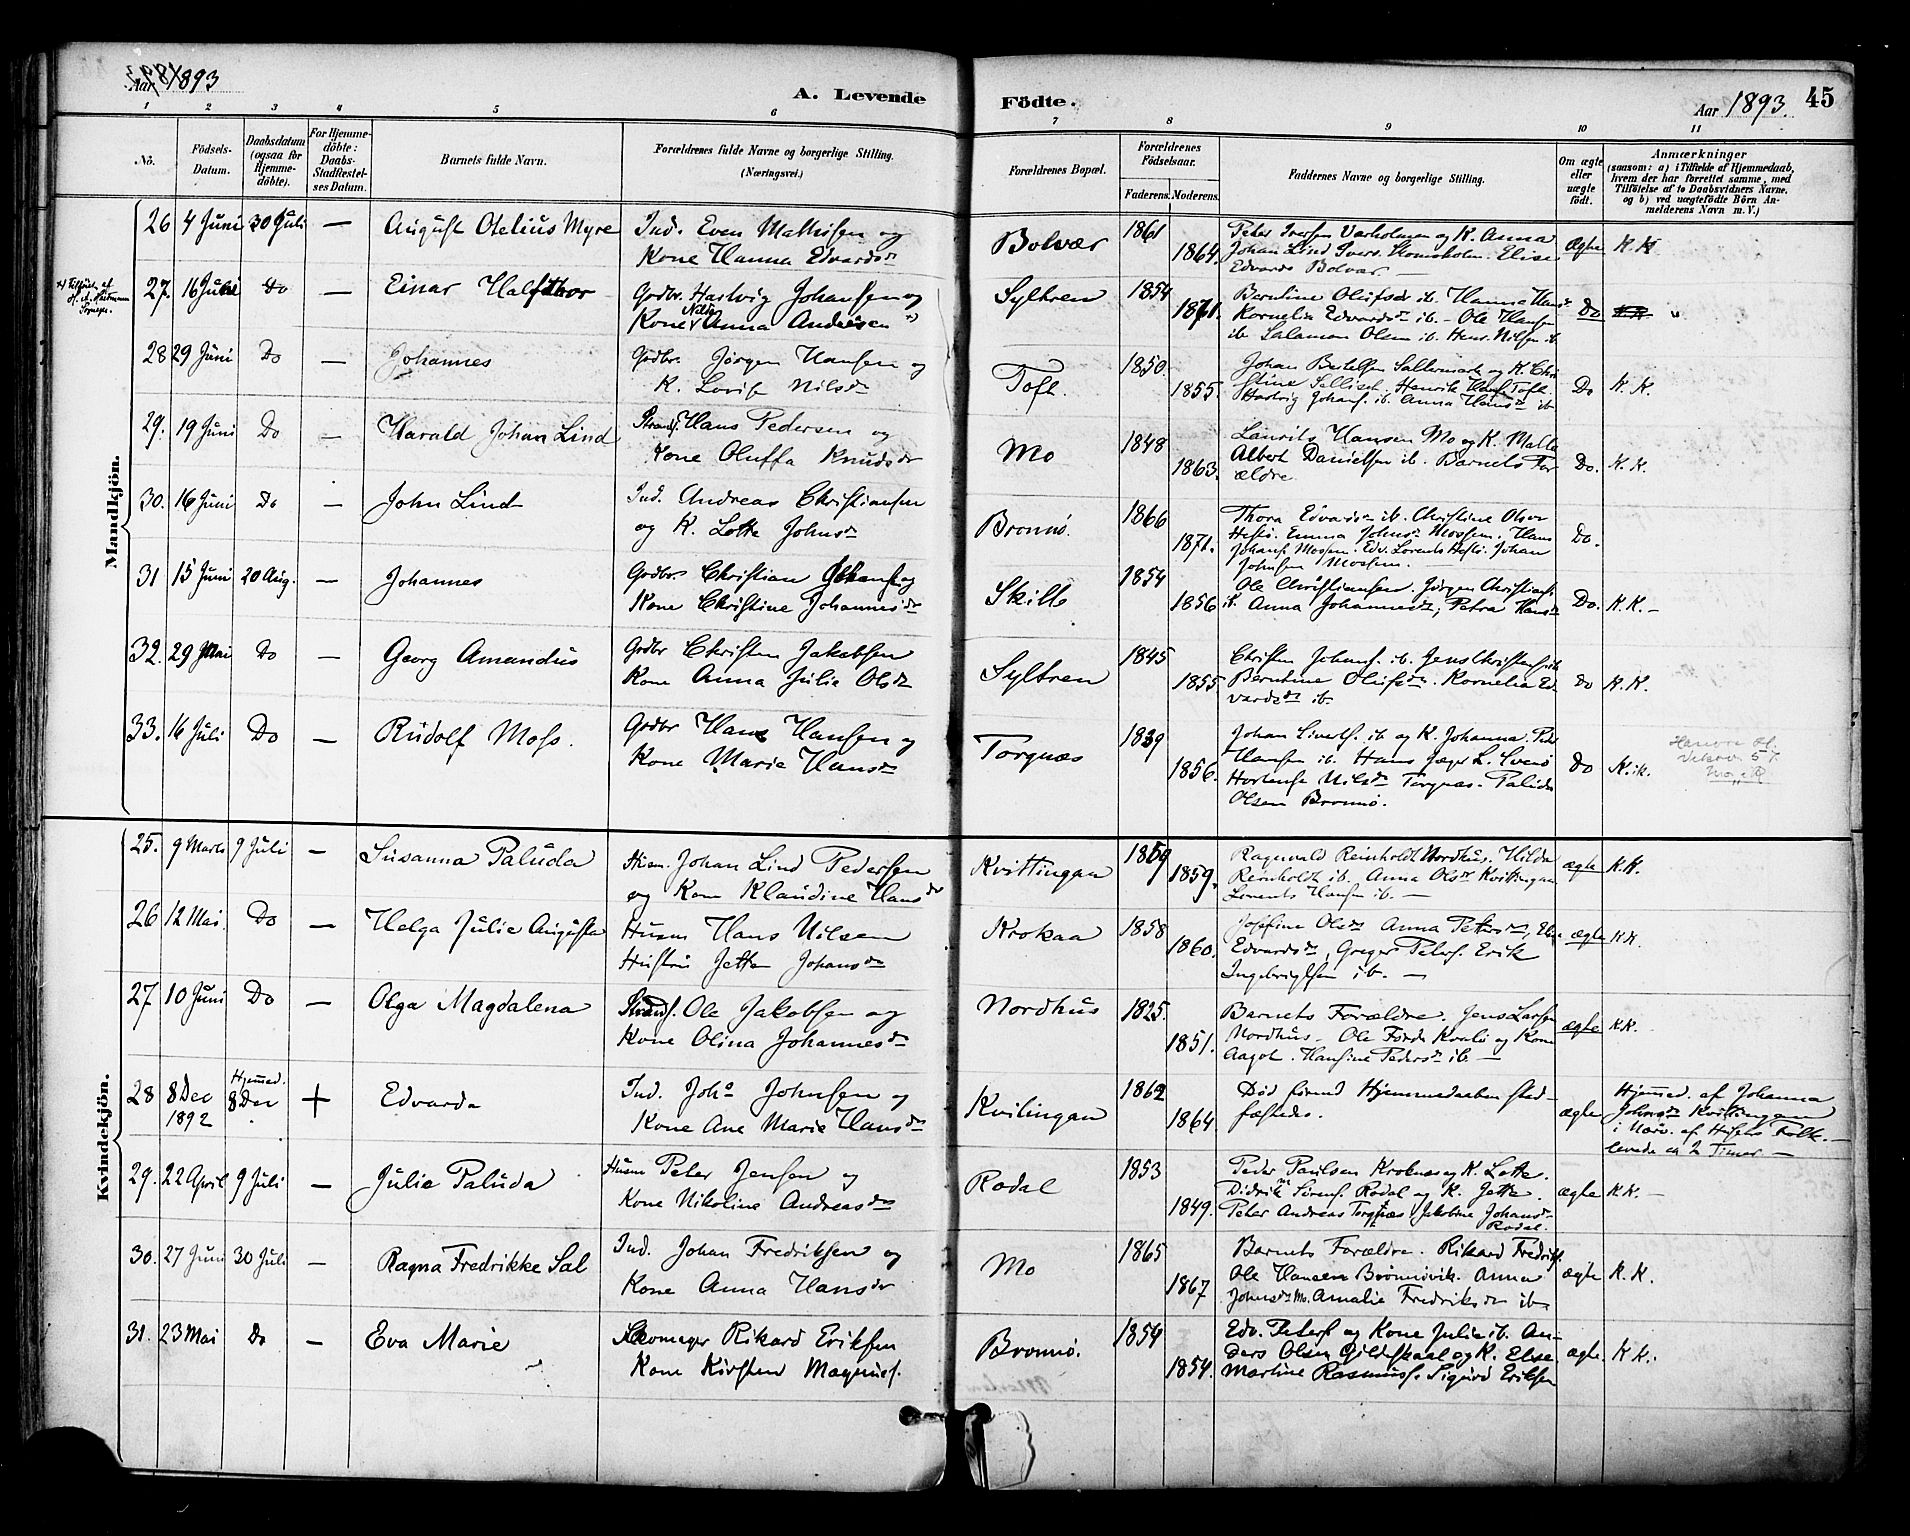 Aar 1893
A. Levende
Födte.
Aar 1893.
45
1 2 3 4 5 6 7 8 9 10 11
No.
Födsels-Datum.
Daabsdatum (ogsaa for Hjemmedöbte).
For Hjemmedöbte: Daabs-Stadfæstelses Datum.
Barnets fulde Navn.
Forældrenes fulde Navne og borgerlige Stilling.
(Næringsvei.)
Forældrenes Bopæl.
Forældrenes Födselsaar.
Faderens. Moderens.
Faddernes Navne og borgerlige Stilling.
Om ægte eller uægte födt.
Anmærkninger
(saasom: a) i Tilfælde af Hjemmedaab, hvem der har forrettet samme, med Tilföielse af to Daabsvidners Navne, og b) ved uægtefödte Börn Anmelderens Navn m. V.)
Mandkjön.
26 4 Juni 30 Juli — August Otelius Myre Ind. Even Mathisen og
Kone Hanna Edvardsdr
Bolvær 1861 1864. Peter Iversen Varholmen og K. Anna
Johan Lind Ivers. Skomoholm. Elise
Edvards Bolvær
ægte K. K
27. 16 Juli Do — Einar Halfthor Grdbr. Hartvig Johansen og
Kone Nilda Anna Andrésen
Syltren 1854 1861. Berntine Olufsdr ib. Hanna Hansdr
Kornelia Edvardsdr ib. - Ole Hansen
ib. Salamon Olsen ib. Hans Nilsen ib.
Do
28 29 Juni Do — Johannes Grdbr. Jørgen Hansen og
K. Lovise Nilsdr
Toft. 1850. 1855. Johan Bertelsen Saltermark og K. Chri
stine Henrik Hans. Toft.
Hartvig Johans. ib. Anna Hansdr ib.
Do K. K.
29. 19 Juni Do — Harald Johan Lind Strands. Hans Pedersen og
Kone Oluffa Knudsdr
Mo 1848 1863. Laurits Hansen Mo og K. Malla
Albert Danielsen ib. Barnets For
ældre.
Do. K. K.
30. 16 Juni Do — John Lind Ind. Andreas Christiansen
og K. Lotte Johnsdr
Brønnö. 1866 1871. Thora Edvardsdr ib. Christine Olsdr
Hestö. Emma Johnsdr Mossem. Hans
Johans. Mossem. Edv. Lorents Hestö. Johan
Johnsen Mossem.
Do.
31 15 Juni 20 Aug. — Johannes Grdbr Christian Johans. og
Kone Christine Johannesdr
Skille 1854 1856 Ole Christiansen. Jørgen Christians.
ib. Anna Johannesdr, Petra Hansdr
Do. K. K. —
32. 29 Mai Do — Georg Amandus Grdbr Christen Jakobsen
Kone Anna Julia Olsdr
Syltren 1845 1855 Christen Johans. ib. Jens Christens. ib
Berntine Olufsdr. Kornelia Ed
vardsdr ib.
Do K. K.
33. 16 Juli Do — Rudolf Moss. Grdbr Hans Hansen og
Kone Marie Hansdr
Torgnæs 1839 1856. Johan Sivertsf. ib og K. Johanna. Peder
Hansen ib. Hans Jæger L. Svenö
Hortense Nilsdr Torgnæs. Paluda
Olsen Brønnö.
Do K. K.
Kvindekjön.
25. 9 Marts 9 Juli — Susanna Paluda Husm. Johan Lind Pedersen
og Kone Klaudine Hansdr
Kvittingan 1859 1859. Ragnvald Reinholdt Nordhus. Hilda
Reinholdt ib. Anna Olsdr Kvittingan
Lorents Hansen ib. —
ægte K. K.
26 12 Mai Do — Helga Julie Augusta Husm Hans Nilsen
Hustru Jette Johansdr
Krokaa 1858 1860. Josefine Olsdr Anna Petersdr,
Edvardsdr, Greger Peters. Erik
Ingebrigtsen ib. —
ægte K. K.
27 10 Juni Do — Olga Magdalena Strands. Ole Jakobsen og
Kone Olina Johannesdr
Nordhus 1825. 1851. Barnets Forældre. Jens Larsen
Nordhus — Ole Förde Kvalö og Kone
Aagot. Hansine Pedersdr ib. —
ægte K. K.
28 8 Dec 1892 Hjemmed. 8 Dec + Edvarda Ind. Joho Johnsen og
Kone Ane Marie Hansdr
Kvilingan 1862 1864 Död förend Hjemmedaaben sted-
fæstedes.
ægte Hjemmed. af Johanna
Johnsdr Kvittingan
i Nærv. af Husets Folk. —
levede ca 2 Timer —
29. 22 April 9 Juli — Julie Paluda Husm Peter Jensen og
Kone Nikoline Andreasdr
Rodal 1853 1849. Peder Paulsen Kroknes og K. Lotte.
Didrik Sörens. Rodal og K. Jette.
Peter Andreas Torgnæs Jakobine Johansdr
Rodal.
ægte K. K. —
30. 27 Juni 30 Juli — Ragna Fredrikke Sal Ind. Johan Fredriksen og
Kone Anna Hansdr
Mo 1865 1867 Barnets Forældre. Rikard Fredriks.
Ole Hansen Brönnövik. Anna
Johnsdr Mo. Amalie Fredriksdr ib
ægte K. K.
31. 23 Mai Do — Eva Marie Skomager Rikard Eriksen
Kone Kirsten Magnus.
Brønnö. 1854 1854. Edv. Peters. og Kone Julie ib. An-
ders Olsen Gildeskaal og K. Elise
Martine Rasmuss. Sigurd Eriksen
ægte. K K.